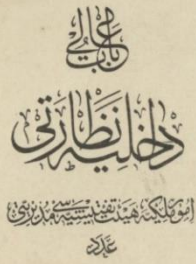 باب عالی
داخلیه نظارتی
امور ملكیه هیئت تفتیشیه سی مدیریتی
عدد